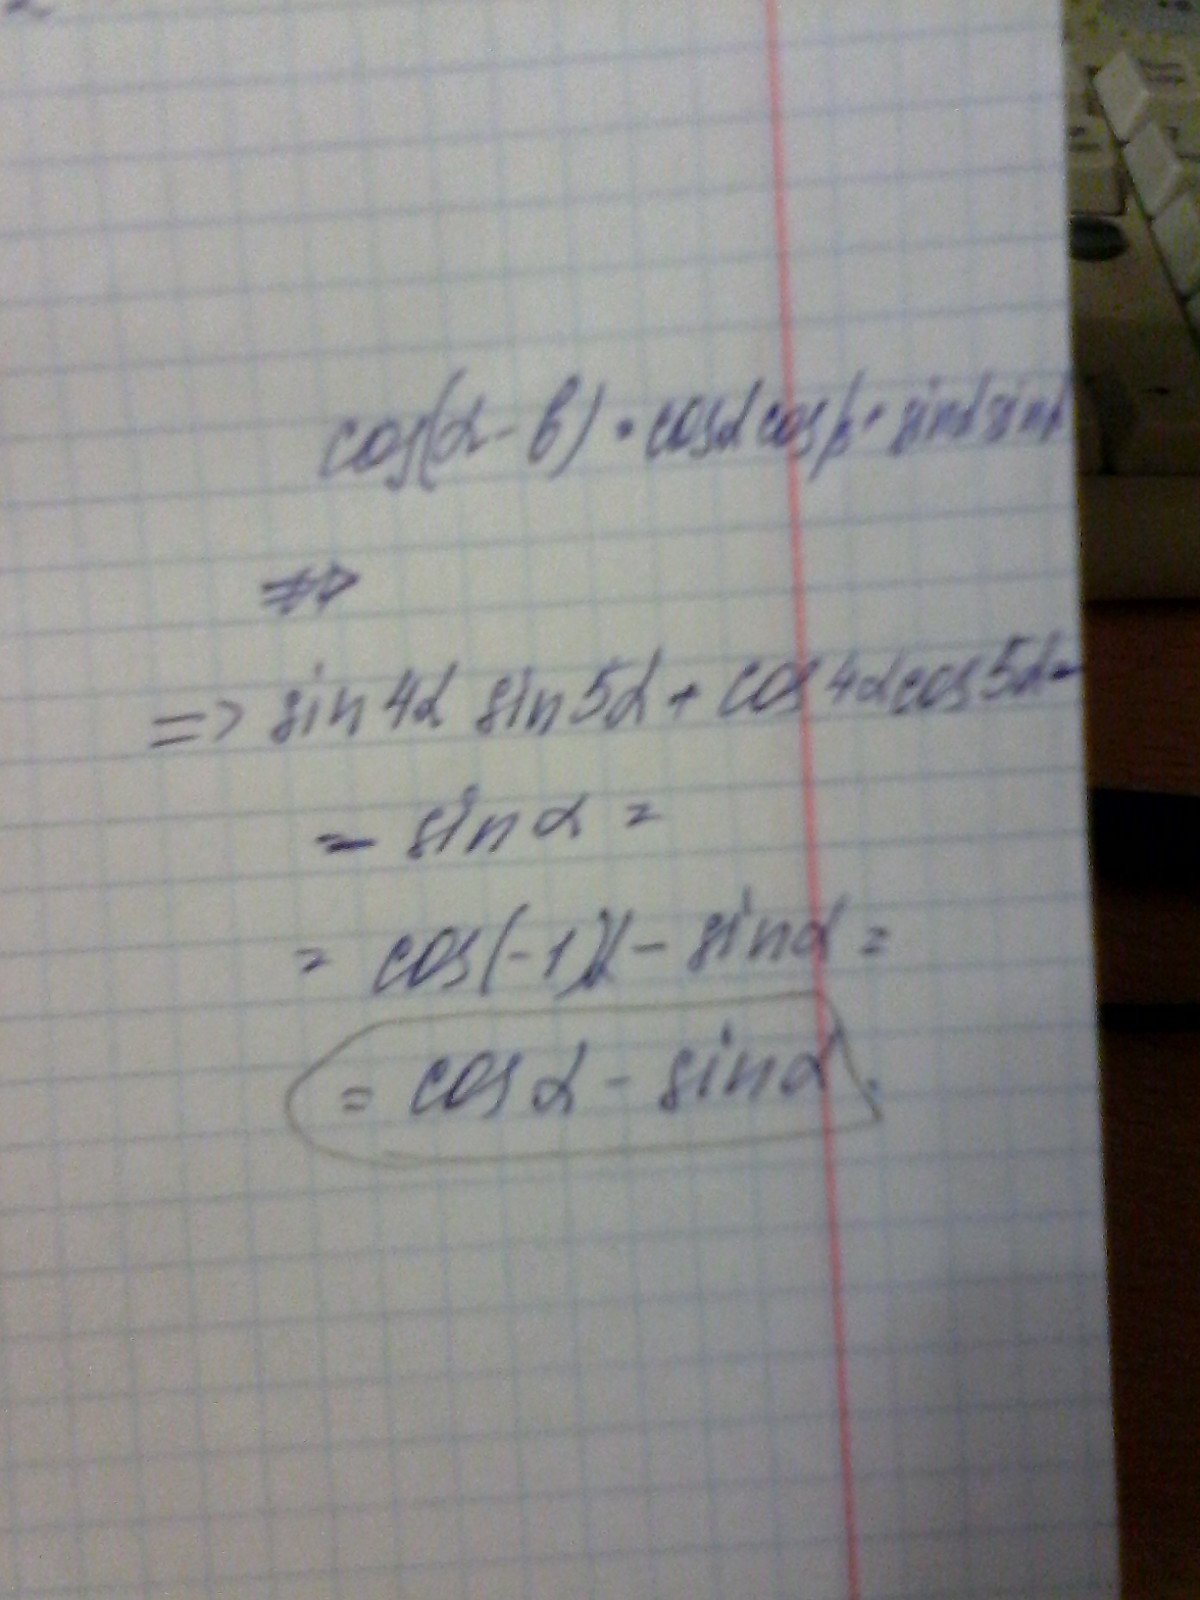 cos(α-β) = cosα cosβ + sinα sinβ
=> sin4α sin5α + cos4α cos5α -
- sinα =
= cos(-1)α - sinα =
= cosα - sinα.